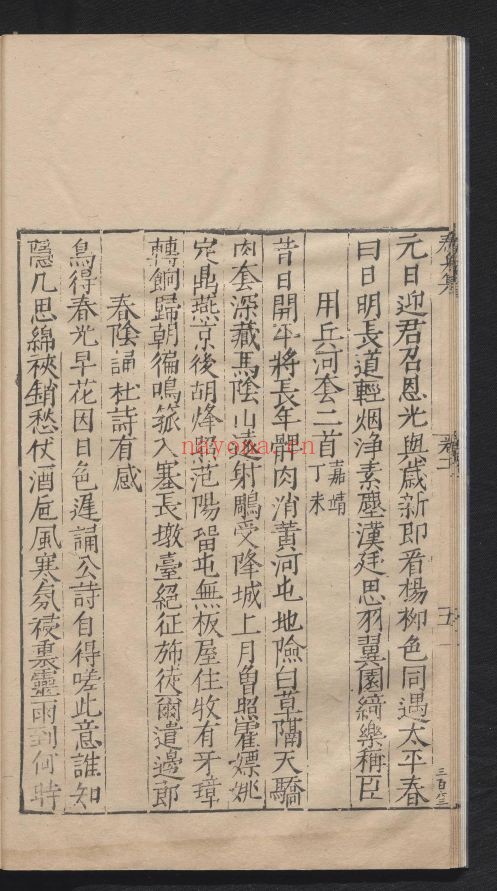 元日迎君召恩光與歲新即看楊柳色同遇太平春
曰日明長道輕烟浄素塵漢廷思羽翼園綺樂稱臣
用兵河套二首嘉靖丁未
昔日開平將長年髀肉消黃河屯地險白草隔天驕
肉套深藏馬陰山遠射鵰受降城上月曾照霍嫖姚
定鼎燕京後胡烽照范陽畱屯無板屋住牧有牙璋
轉餉歸朝徧鳴笳入塞長墩臺絕征斾徒爾遣邊郎
春陰誦杜詩有感
鳥得春光早花因日色遲誦公詩自得嗟此意誰知
隱几思綿裌銷愁仗酒巵風寒氛祲裏靈雨到何時
卷二
五
nayona.cn